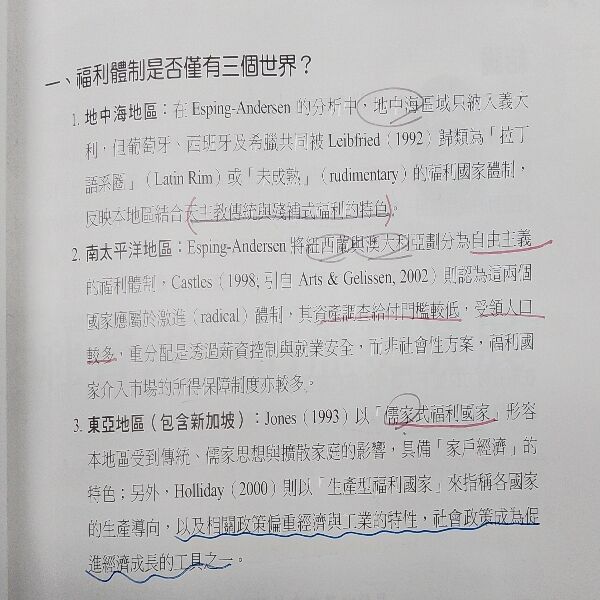 一、福利體制是否僅有三個世界？
1. 地中海地區：在 Esping-Andersen 的分析中，地中海區域只納入義大
利，但葡萄牙、西班牙及希臘共同被 Leibfried（1992）歸類為「拉丁
語系圈」（Latin Rim）或「未成熟」（rudimentary）的福利國家體制，
反映本地區結合天主教傳統與殘補式福利的特色。
2. 南太平洋地區：Esping-Andersen 將紐西蘭與澳大利亞劃分為自由主義
的福利體制，Castles（1998; 引自 Arts & Gelissen, 2002）則認為這兩個
國家應屬於激進（radical）體制，其資產調查給付門檻較低，受領人口
較多，重分配是透過薪資控制與就業安全，而非社會性方案，福利國
家介入市場的所得保障制度亦較多。
3. 東亞地區（包含新加坡）：Jones（1993）以「儒家式福利國家」形容
本地區受到傳統、儒家思想與擴散家庭的影響，具備「家戶經濟」的
特色；另外，Holliday（2000）則以「生產型福利國家」來指稱各國家
的生產導向，以及相關政策偏重經濟與工業的特性，社會政策成為促
進經濟成長的工具之一。